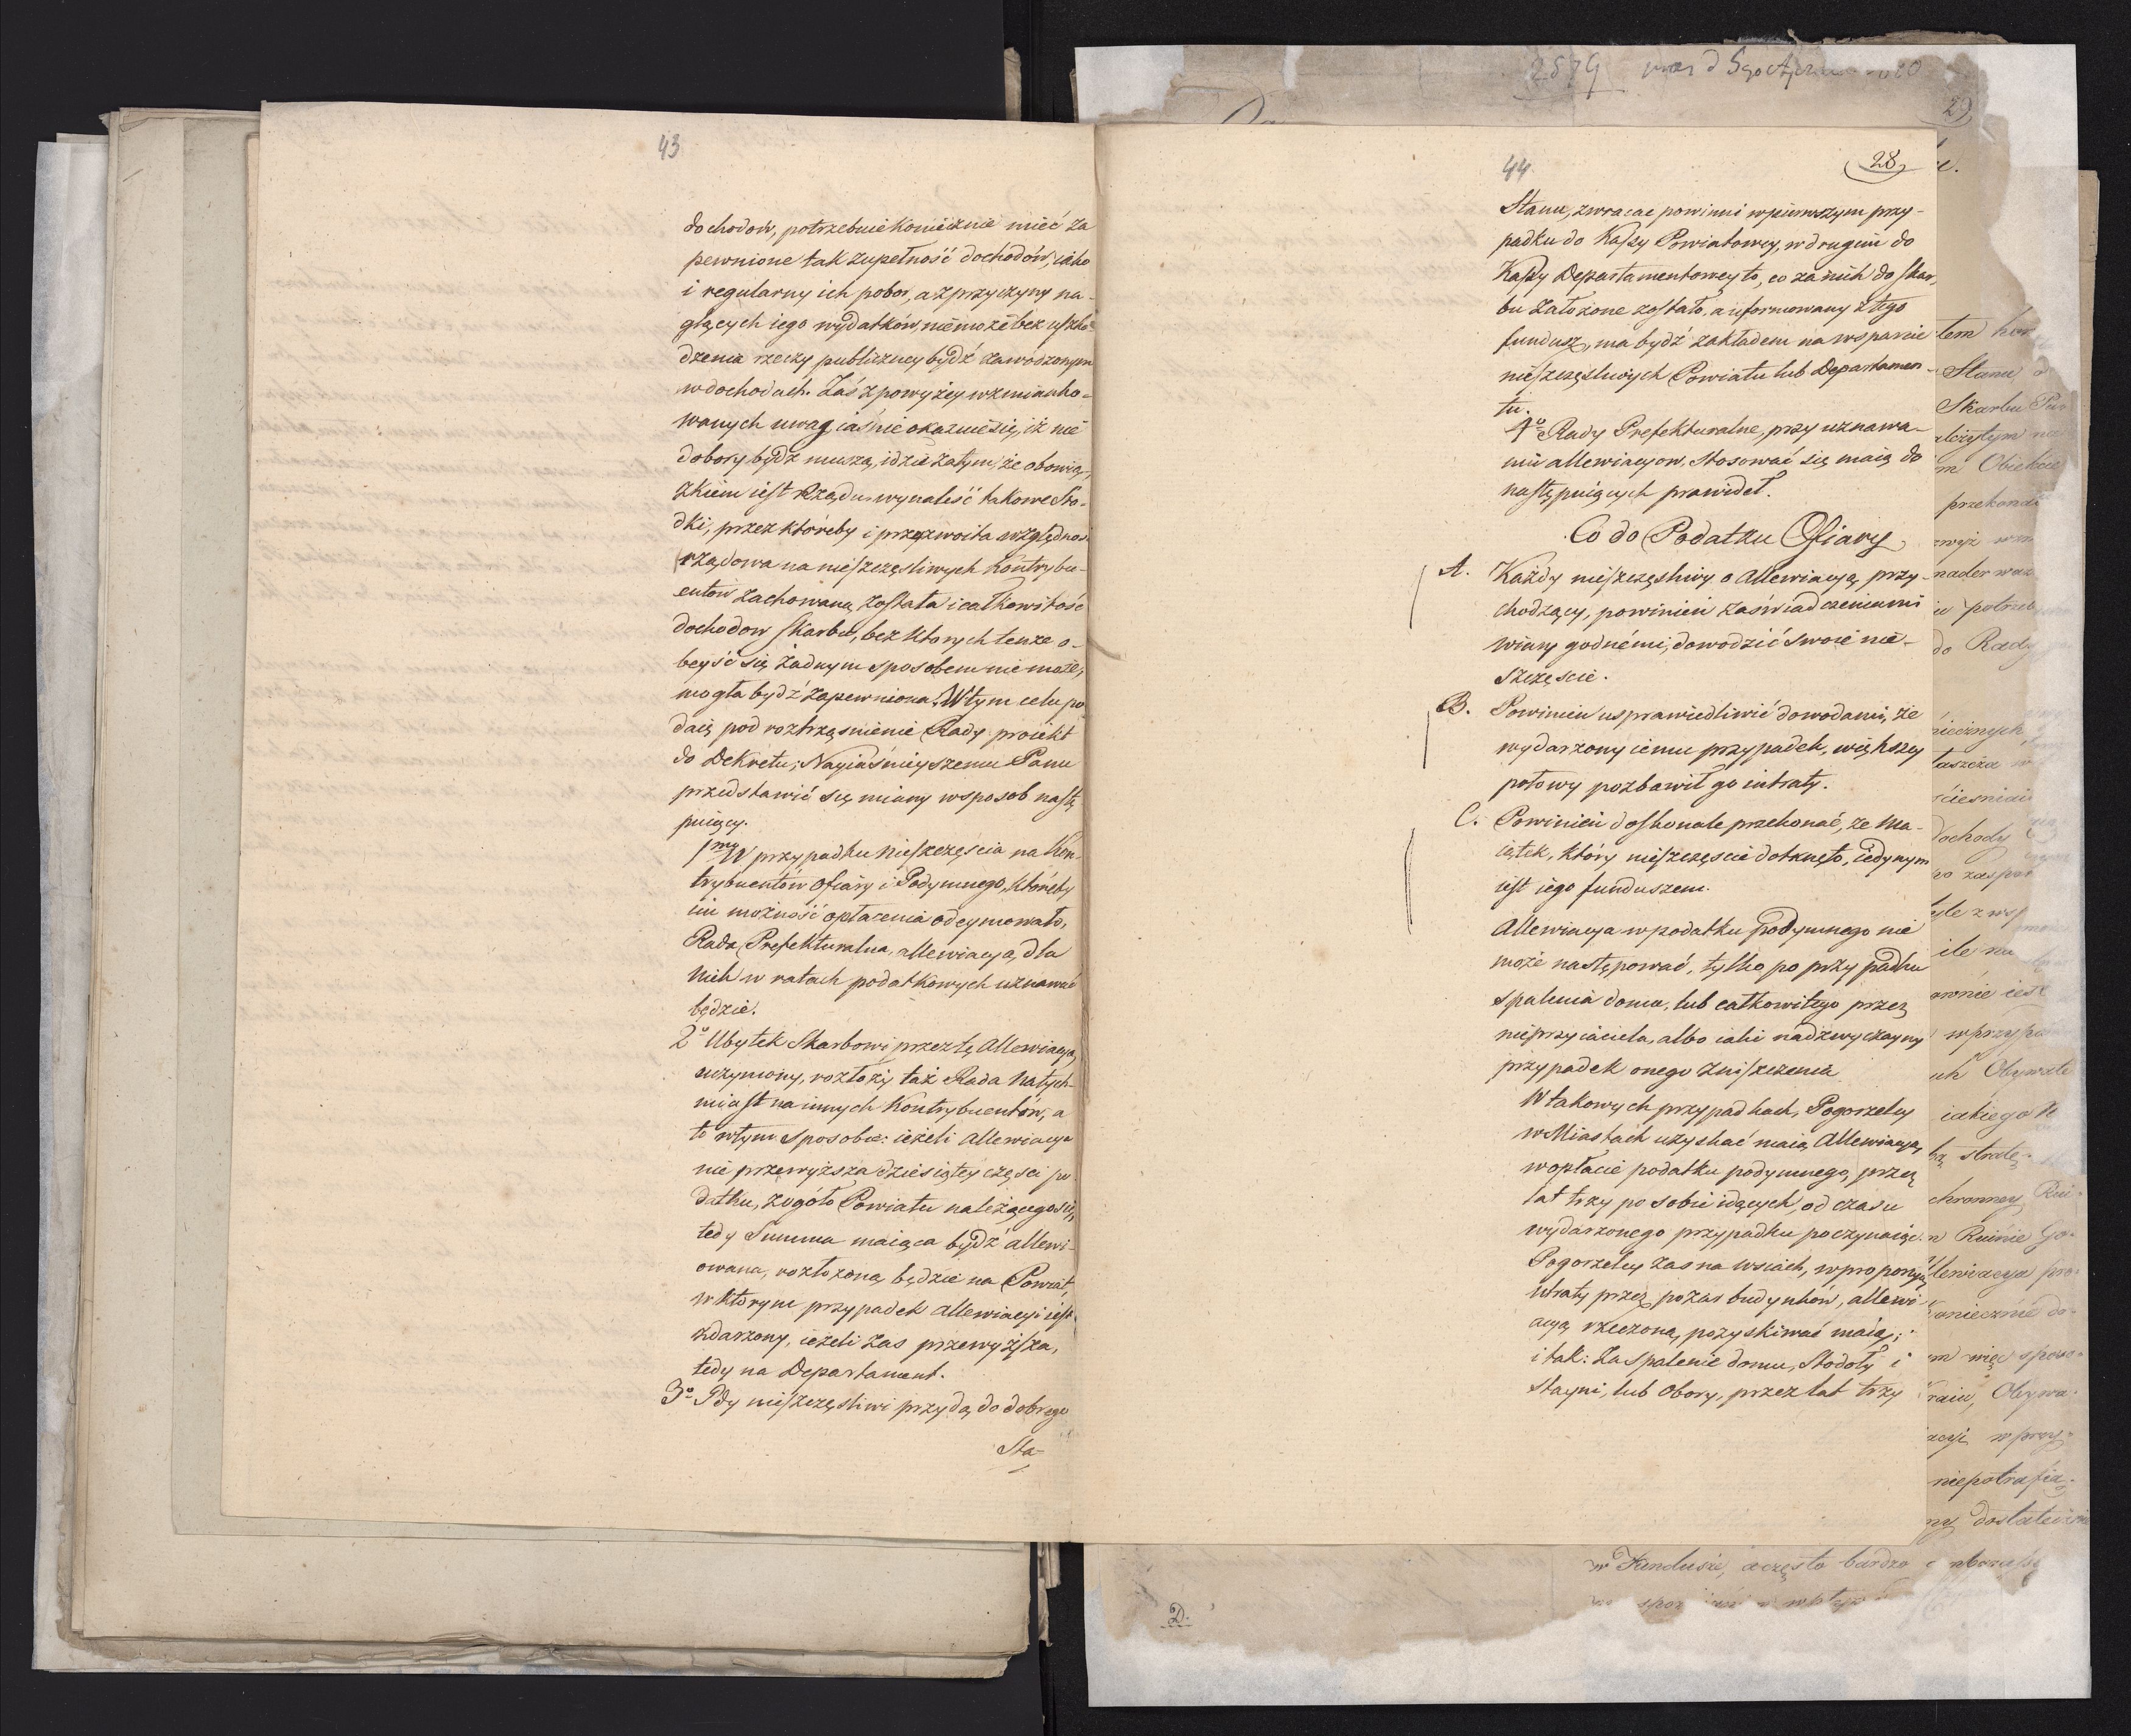 43
dochodow, potrzebuie koniecznie mieć za
pewnione tak zupełność dochodów, iako
i regularny ich pobor, a z przyczyny na-
glących iego wydatków, nie może bez uszko-
dzenia rzeczy publiczney bydź zawodzonym
w dochodach. Zaś z powyżey wzmianko-
wanych uwag, iaśnie okazuie się, iż nie
dobory bydź muszą, idzie zatym, że obowią-
zkiem iest Rządu wynaleść takowe Śro-
dki, przez któreby i przyzwoita względność
rządowa na nieszczęśliwych kontrybu-
entów zachowaną została i całkowitość
dochodow skarbu, bez ktorych tenże o-
beyść się żadnym sposobem nie może,
mogła bydź zapewniona. W tym celu po
daię pod roztrząśnienie Rady proiekt
do Dekretu, Nayiaśnieyszemu Panu
przedstawić się miany w sposob nastę
puiący.
1mo W przypadku nieszczęścia na Kon-
trybuentów Ofiary i Podymnego, któreby
im możność opłacenia odeymowało,
Rada Prefekturalna, allewiacyą dla
nich w ratach podatkowych uznawać
będzie.
2o Ubytek Skarbowi przez tę Allewiacyą
uczyniony, rozłoży taż Rada natych-
miast na innych Kontrybuentów, a
to w tym sposobie: ieżeli Allewiacya
nie przewyższa dziesiątey części po
datku, z ogółu Powiatu należącego się,
tedy Summa maiąca bydź allewi-
owana, rozłożoną będzie na Powiat,
w którym przypadek allewiacyi iest
zdarzony, ieżeli zas przewyższa,
tedy na Departament.
3o Gdy nieszczęśliwi przyydą do dobrego
Sta-
44
28
Stanu, zwracać powinni w pierwszym przy-
padku do Kassy Powiatowey, w drugim do
Kassy Departamentowey to, co za nich do skar,
bu założone zostało, a uformowany z tego
fundusz, ma bydź zakładem na wsparcie
nieszczęśliwych Powiatu lub Departamen-
tu.
4o Rady Prefekturalne, przy uznawa-
niu allewiacyow, stosować się maią do
następuiących prawideł.
Co do Podatku Ofiary
A. Każdy nieszczęśliwy o Allewiacyą przy-
chodzący, powinien zaświadczeniami
wiary godnémi, dowodzić swoie nie-
szczęscie.
B. Powinien usprawiedliwić dowodami, że
wydarzony iemu przypadek, większey
połowy pozbawił go intraty.
C. Powinien doskonale przekonać, że Ma-
iątek, który nieszczęscie dotknęło, iedynym
iest iégo funduszem.
Allewiacya w podatku podymnego nie
może następować, tylko po przypadku
spalenia domu, lub całkowitego przez
nieprzyiaciela, albo iaki nadzwyczayny
przypadek onego zniszczenia
W takowych przypadkach, Pogorzelcy
w Miastach uzyskać maią Allewiacyą,
w opłacie podatku podymnego, przez
lat trzy po sobie idących, od czasu
wydarzonego przypadku poczynaiąc.
Pogorzelcy zas na wsiach, w proporcyą
utraty przez pożar budynków, allewi-
acyą rzeczoną, pozyskiwać maią;
i tak: Za spalenie domu, Stodoły i
stayni, lub Obory, przez lat trzy
2579
29
Stanu
Skarbu
Obiekcie
potrzeb
do Rady
dochody
ile na
Obywate
iakiego
stratę
Ruinie
więc sposo-
Obywa-
niepotrafią
w Funduszu, a często bardzo
D.